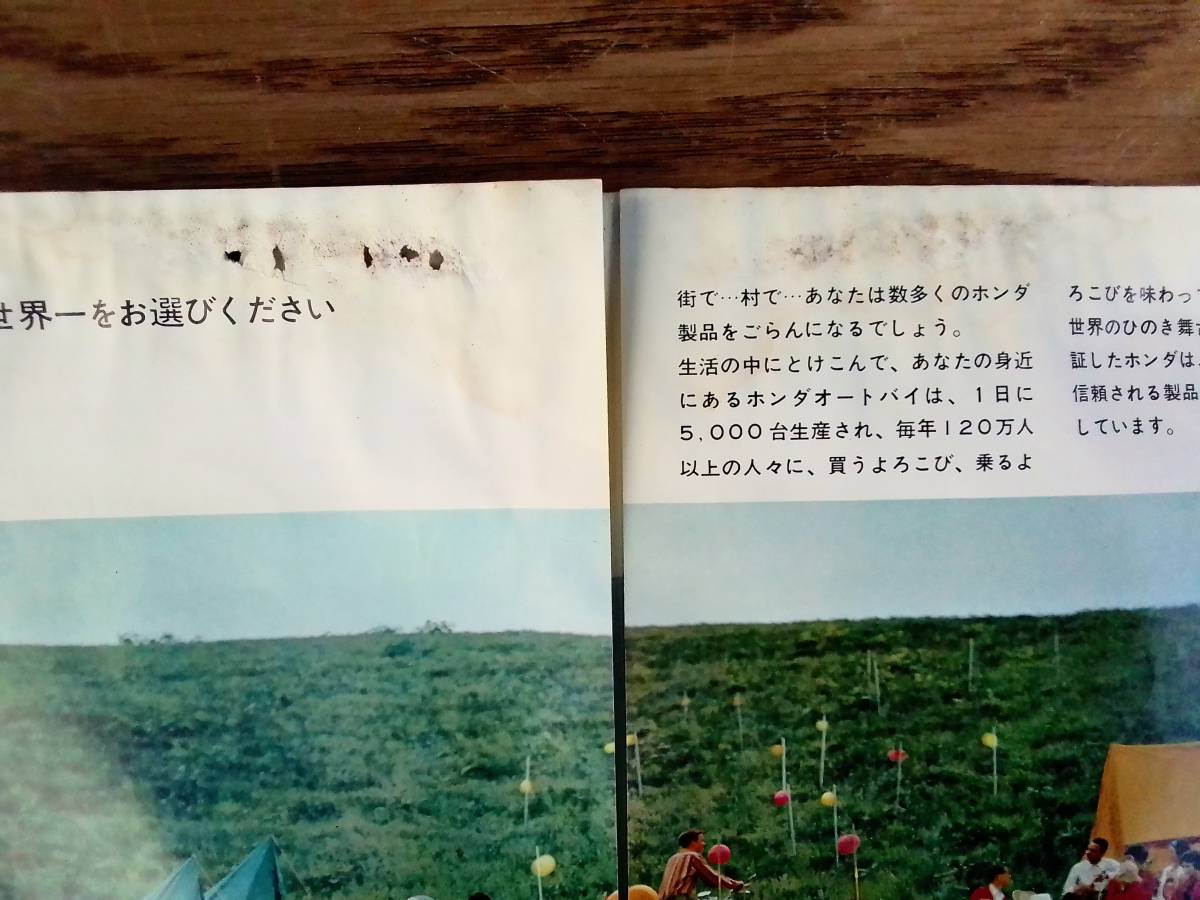 世界一をお選びください
街で…村で…あなたは数多くのホンダ
製品をごらんになるでしょう。
生活の中にとけこんで、あなたの身近
にあるホンダオートバイは、1日に
5,000台生産され、毎年120万人
以上の人々に、買うよろこび、乗るよ
ろこびを味わって
世界のひのき舞
証したホンダは
信頼される製品
しています。